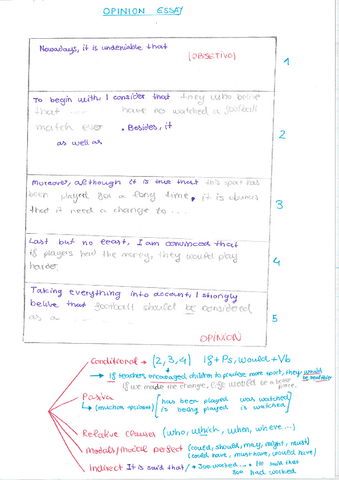 OPINION ESSAY
Nowadays, it is undeniable that
(OBSETIVO)
1
To begin with, I consider that they who belive
that ... have no watched a football
match ever . Besides, it
as well as
2
Moreover, although it is true that this sport has
been played for a long time, it is obvious
that it need a change to ...
3
Last but no least, I am convinced that
if players hard the money, they would play
harder
4
Taking everything into account, I strongly
belive that football should be considered
as a ...
5
OPINION
Conditional → (2,3,4) If + Ps, would + Vb
→ If teachers encouraged children to practise more sport, they would
be healthier
If we made the change, life would be a better
place
Pasiva
→ (muchas opciones) [has been played was watched
is being played is watched]
Relative clauses (who, which, when, where...)
Modals/modal perfect (could, should, may, might, must)
(could have, must have, would have)
Indirect It is said that / Joo worked... • It said that
Joo had worked